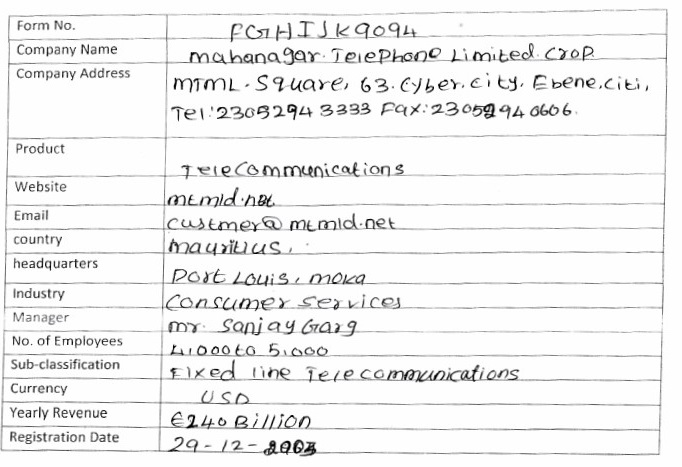 Form No. FGHIJK9094
Company Name mahanagar. TelePhone Limited. Crop.
Company Address mTmL. Square, 63. Cyber. city. Ebene. citi,
Tel:23052943333 Fax:23052940606.
Product Telecommunications
Website mtmld.net
Email custmer@mtmld.net
country mauritius.
headquarters Port Louis, moka
Industry Consumer services
Manager mr. Sanjay Garg
No. of Employees 4,000 to 5,000
Sub-classification Fixed line Telecommunications
Currency USD
Yearly Revenue €240 Billion
Registration Date 29-12-2003